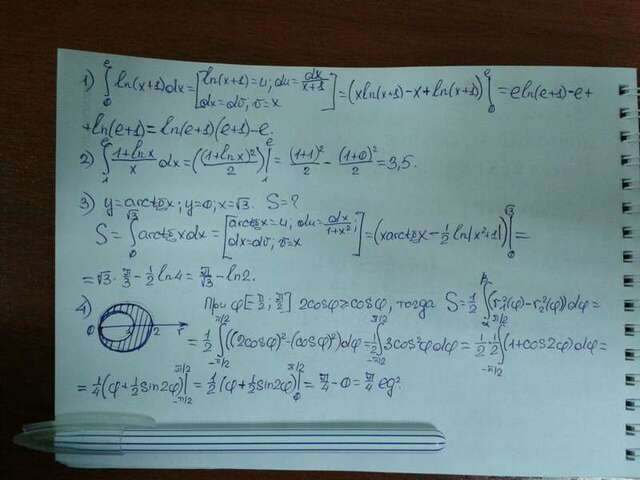 1) ∫₀ᵉ ln(x+1)dx = [ln(x+1)=u; du=dx/(x+1); dx=dv, v=x] = (xln(x+1)-x+ln(x+1))|₀ᵉ = eln(e+1)-e+
+ln(e+1)=ln(e+1)(e+1)-e.
2) ∫₁ᵉ (1+lnx)/x dx = ((1+lnx)²/2)|₁ᵉ = (1+1)²/2 - (1+0)²/2 = 3,5.
3) y=arctgx; y=0; x=√3. S=?
S = ∫₀^√3 arctgxdx = [arctgx=u, du=dx/(1+x²); dx=dv, v=x] = (xarctgx - 1/2 ln|x²+1|)|₀^√3 =
= √3·π/3 - 1/2 ln4 = π/√3 - ln2.
4) 0 1 2 r При φ[-π/2; π/2] 2cosφ≥cosφ, тогда S = 1/2 ∫(r₁²(φ)-r₂²(φ))dφ =
= 1/2 ∫_{-π/2}^{π/2} ((2cosφ)²-(cosφ)²)dφ = 1/2 ∫_{-π/2}^{π/2} 3cos²φdφ = 1/2·1/2 ∫_{-π/2}^{π/2} (1+cos2φ)dφ =
= 1/4 (φ+1/2 sin2φ)|_{-π/2}^{π/2} = 1/2 (φ+1/2 sin2φ)|₀^{π/2} = π/4 - 0 = π/4 eg²